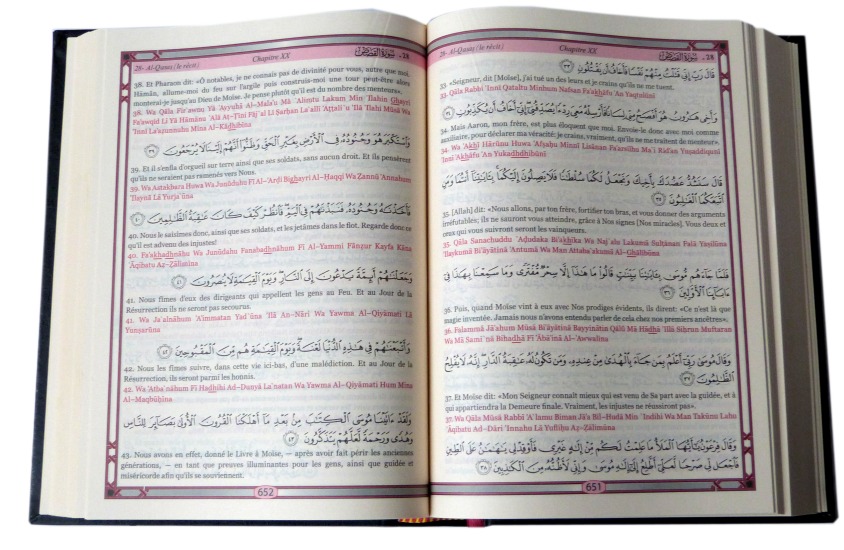 28- Al-Qasas (le récit)
Chapitre XX
سُورَةُ القَصَصِ - 28
قَالَ رَبِّ إِنِّي قَتَلْتُ مِنْهُمْ نَفْسًا فَأَخَافُ أَن يَقْتُلُونِ ٣٣
33. «Seigneur, dit [Moïse], j'ai tué un des leurs et je crains qu'ils ne me tuent.
33. Qāla Rabbi 'Innī Qataltu Minhum Nafsan Fa'akhāfu 'An Yaqtulūni
وَأَخِي هَارُونُ هُوَ أَفْصَحُ مِنِّي لِسَانًا فَأَرْسِلْهُ مَعِيَ رِدْءًا يُصَدِّقُنِي إِنِّي أَخَافُ أَن يُكَذِّبُونِ ٣٤
34. Mais Aaron, mon frère, est plus éloquent que moi. Envoie-le donc avec moi comme
auxiliaire, pour déclarer ma véracité: je crains, vraiment, qu'ils ne me traitent de menteur».
34. Wa 'Akhī Hārūnu Huwa 'Afşaĥu Minnī Lisānan Fa'arsilhu Ma`ī Rid'an Yuşaddiqunī
'Innī 'Akhāfu 'An Yukadhdhibūni
قَالَ سَنَشُدُّ عَضُدَكَ بِأَخِيكَ وَنَجْعَلُ لَكُمَا سُلْطَانًا فَلَا يَصِلُونَ إِلَيْكُمَا بِآيَاتِنَا أَنتُمَا وَمَنِ
اتَّبَعَكُمَا الْغَالِبُونَ ٣٥
35. [Allah] dit: «Nous allons, par ton frère, fortifier ton bras, et vous donner des arguments
irréfutables; ils ne sauront vous atteindre, grâce à Nos signes [Nos miracles]. Vous deux et
ceux qui vous suivront seront les vainqueurs.
35. Qāla Sanashuddu `Ađudaka Bi'akhīka Wa Naj`alu Lakumā Sulţānan Falā Yaşilūna
'Ilaykumā Bi'āyātinā 'Antumā Wa Man Attaba`akumā Al-Ghālibūna
فَلَمَّا جَاءَهُم مُّوسَى بِآيَاتِنَا بَيِّنَاتٍ قَالُوا مَا هَذَا إِلَّا سِحْرٌ مُّفْتَرًى وَمَا سَمِعْنَا بِهَذَا فِي
آبَائِنَا الْأَوَّلِينَ ٣٦
36. Puis, quand Moïse vint à eux avec Nos prodiges évidents, ils dirent: «Ce n'est là que
magie inventée. Jamais nous n'avons entendu parler de cela chez nos premiers ancêtres».
36. Falammā Jā'ahum Mūsá Bi'āyātinā Bayyinātin Qālū Mā Hādhā 'Illā Siĥrun Muftaran
Wa Mā Sami`nā Bihadhā Fī 'Ābā'inā Al-'Awwalīna
وَقَالَ مُوسَى رَبِّي أَعْلَمُ بِمَن جَاءَ بِالْهُدَى مِنْ عِندِهِ وَمَن تَكُونُ لَهُ عَاقِبَةُ الدَّارِ إِنَّهُ لَا يُفْلِحُ
الظَّالِمُونَ ٣٧
37. Et Moïse dit: «Mon Seigneur connaît mieux qui est venu de Sa part avec la guidée, et à
qui appartiendra la Demeure finale. Vraiment, les injustes ne réussiront pas».
37. Wa Qāla Mūsá Rabbī 'A`lamu Biman Jā'a Bil-Hudá Min `Indihi Wa Man Takūnu Lahu
`Āqibatu Ad-Dāri 'Innahu Lā Yufliĥu Až-Žālimūna
وَقَالَ فِرْعَوْنُ يَا أَيُّهَا الْمَلَأُ مَا عَلِمْتُ لَكُم مِّنْ إِلَهٍ غَيْرِي فَأَوْقِدْ لِي يَا هَامَانُ عَلَى الطِّينِ
فَاجْعَل لِّي صَرْحًا لَّعَلِّي أَطَّلِعُ إِلَى إِلَهِ مُوسَى وَإِنِّي لَأَظُنُّهُ مِنَ الْكَاذِبِينَ ٣٨
651
28- Al-Qasas (le récit)
Chapitre XX
سُورَةُ القَصَصِ - 28
38. Et Pharaon dit: «Ô notables, je ne connais pas de divinité pour vous, autre que moi.
Hāmān, allume-moi du feu sur l'argile puis construis-moi une tour peut-être alors
monterai-je jusqu'au Dieu de Moïse. Je pense plutôt qu'il est du nombre des menteurs».
38. Wa Qāla Fir`awnu Yā 'Ayyuhā Al-Mala'u Mā `Alimtu Lakum Min 'Ilahin Ghayrī
Fa'awqid Lī Yā Hāmānu `Alá Aţ-Ţīni Fāj`al Lī Şarĥan La`allī 'Aţţali`u 'Ilá 'Ilahi Mūsá Wa
'Innī La'ažunnuhu Mina Al-Kādhibīna
وَاسْتَكْبَرَ هُوَ وَجُنُودُهُ فِي الْأَرْضِ بِغَيْرِ الْحَقِّ وَظَنُّوا أَنَّهُمْ إِلَيْنَا لَا يُرْجَعُونَ ٣٩
39. Et il s'enfla d'orgueil sur terre ainsi que ses soldats, sans aucun droit. Et ils pensèrent
qu'ils ne seraient pas ramenés vers Nous.
39. Wa Astakbara Huwa Wa Junūduhu Fī Al-'Arđi Bighayri Al-Ĥaqqi Wa Žannū 'Annahum
'Ilaynā Lā Yurja`ūna
فَأَخَذْنَاهُ وَجُنُودَهُ فَنَبَذْنَاهُمْ فِي الْيَمِّ فَانظُرْ كَيْفَ كَانَ عَاقِبَةُ الظَّالِمِينَ ٤٠
40. Nous le saisîmes donc, ainsi que ses soldats, et les jetâmes dans le flot. Regarde donc ce
qu'il est advenu des injustes!
40. Fa'akhadhnāhu Wa Junūdahu Fanabadhnāhum Fī Al-Yammi Fānžur Kayfa Kāna
`Āqibatu Až-Žālimīna
وَجَعَلْنَاهُمْ أَئِمَّةً يَدْعُونَ إِلَى النَّارِ وَيَوْمَ الْقِيَامَةِ لَا يُنصَرُونَ ٤١
41. Nous fîmes d'eux des dirigeants qui appellent les gens au Feu. Et au Jour de la
Résurrection ils ne seront pas secourus.
41. Wa Ja`alnāhum 'A'immatan Yad`ūna 'Ilá An-Nāri Wa Yawma Al-Qiyāmati Lā
Yunşarūna
وَأَتْبَعْنَاهُمْ فِي هَذِهِ الدُّنْيَا لَعْنَةً وَيَوْمَ الْقِيَامَةِ هُم مِّنَ الْمَقْبُوحِينَ ٤٢
42. Nous les fîmes suivre, dans cette vie ici-bas, d'une malédiction. Et au Jour de la
Résurrection, ils seront parmi les honnis.
42. Wa 'Atba`nāhum Fī Hadhihi Ad-Dunyā La`natan Wa Yawma Al-Qiyāmati Hum Mina
Al-Maqbūĥīna
وَلَقَدْ آتَيْنَا مُوسَى الْكِتَابَ مِن بَعْدِ مَا أَهْلَكْنَا الْقُرُونَ الْأُولَى بَصَائِرَ لِلنَّاسِ
وَهُدًى وَرَحْمَةً لَّعَلَّهُمْ يَتَذَكَّرُونَ ٤٣
43. Nous avons, en effet, donné le Livre à Moïse, – après avoir fait périr les anciennes
générations, – en tant que preuves illuminantes pour les gens, ainsi que guidée et
miséricorde afin qu'ils se souviennent.
652